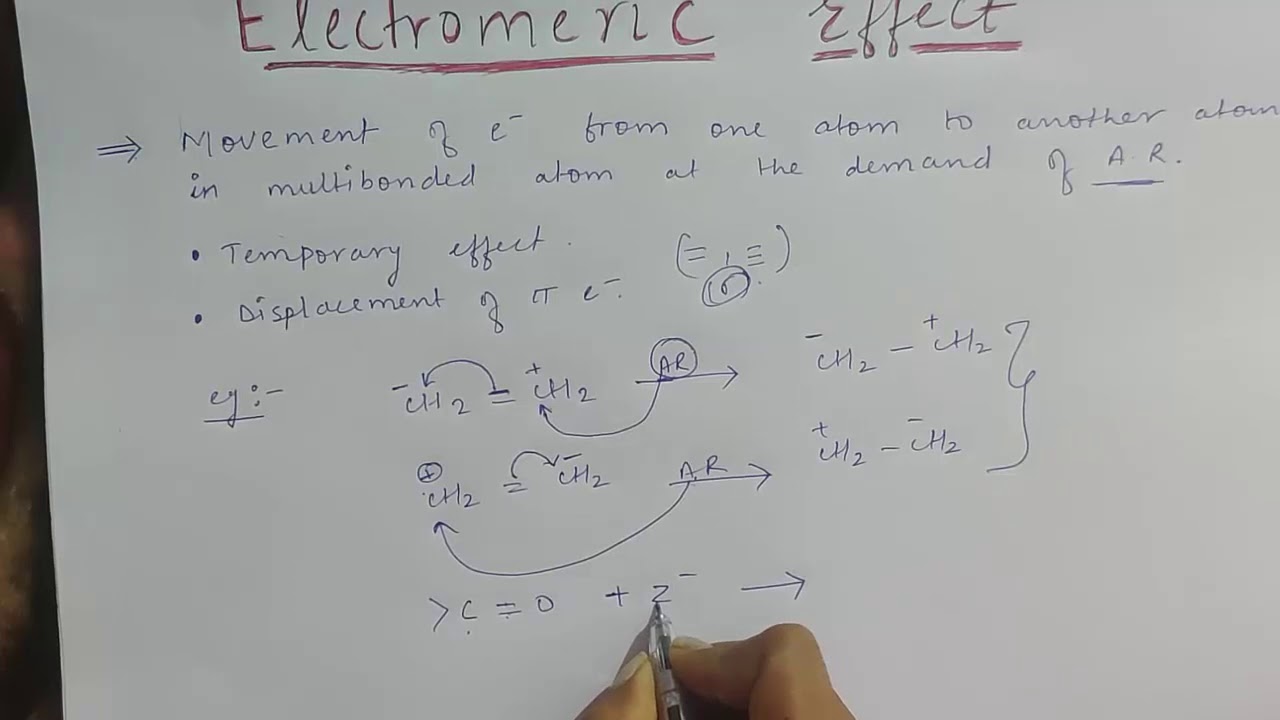 Electromeric Effect
⇒ Movement of e⁻ from one atom to another atom
in multibonded atom at the demand of A.R.
• Temporary effect. (=, ≡)
• Displacement of π e⁻.
eg:- ⁻CH₂ = ⁺CH₂ AR→ ⁻CH₂ - ⁺CH₂
⊕CH₂ = ⁻CH₂ A.R→ ⁺CH₂ - ⁻CH₂
>C = O + Z⁻ →